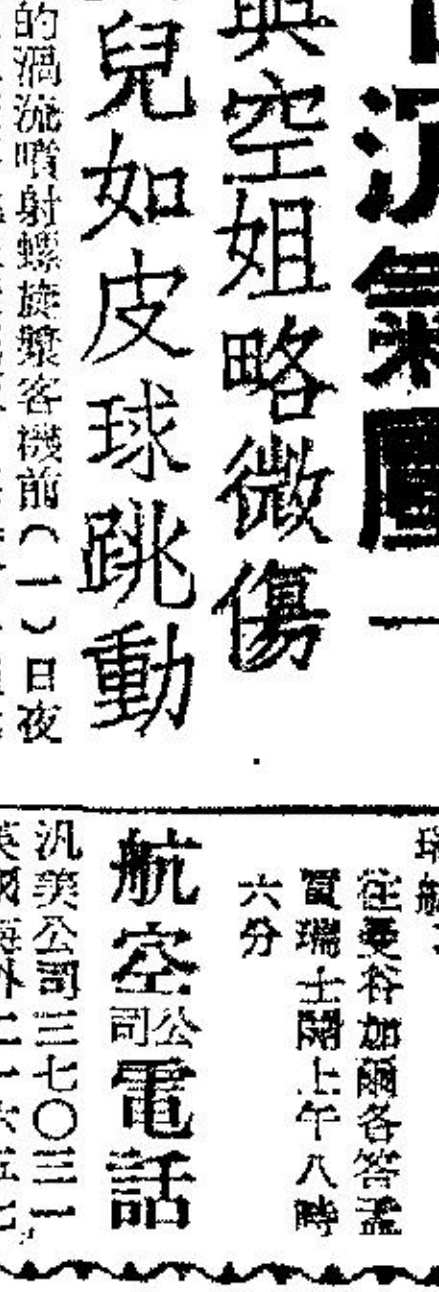 沉氣團一
與空姐略微傷
兒如皮球跳動
的渦流噴射螺旋槳客機前（一）日夜
瑞航
往曼谷加爾各答孟
買瑞士開上午八時
六分
航空公司電話
汎美公司三七〇三一
英國海外二一六五七